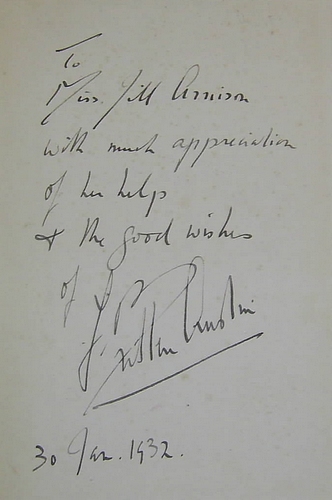 To
Miss Jill Arnison
with much appreciation
of her help
& the good wishes
of
F. Britten Austin
30 Jan. 1932.